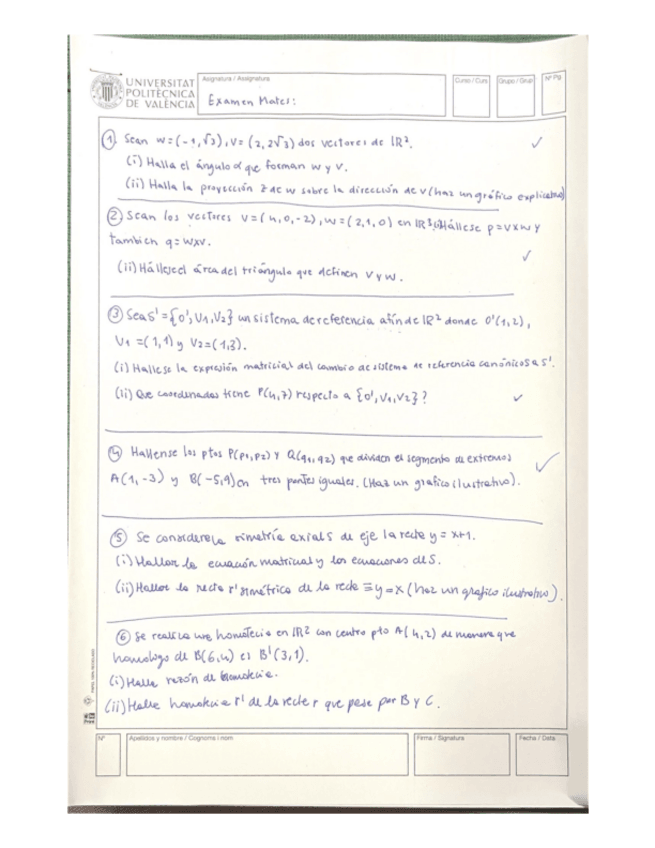 UNIVERSITAT
POLITÈCNICA
DE VALÈNCIA
Asignatura / Assignatura
Curso / Curs
Grupo / Grup
Nº Pg
Examen Mates:
① Sean w=(-1,√3), v=(2,2√3) dos vectores de IR².
(i) Halla el ángulo α que forman w y v.
(ii) Halla la proyección z de w sobre la dirección de v (haz un gráfico explicativo)
② Sean los vectores v=(4,0,-2), w=(2,1,0) en IR³. (i) Hállese p=vxw y
tambien q=wxv.
(ii) Hállese el área del triángulo que definen v y w.
③ Sea S'={0',V1,V2} un sistema de referencia afín de IR² donde 0'(1,2),
V1=(1,1) y V2=(1,3).
(i) Hallese la expresión matricial del cambio de sistema de referencia canónico S a S'.
(ii) Que coordenadas tiene P(4,7) respecto a {0',V1,V2}?
④ Hallense los ptos P(p1,p2) y Q(q1,q2) que dividen el segmento de extremos
A(1,-3) y B(-5,9) en tres partes iguales. (Haz un grafico ilustrativo).
⑤ Se considere la simetría axial S de eje la recta y=x+1.
(i) Hallar la ecuación matricial y las ecuaciones de S.
(ii) Hallar la recta r' simétrica de la recta ≡y=x (haz un grafico ilustrativo).
⑥ Se realiza una homotecia en IR² con centro pto A(4,2) de manera que
homologo de B(6,4) es B'(3,1).
(i) Halla razón de homotecia.
(ii) Halle homotecia r' de la recta r que pase por B y C.
Nº
Apellidos y nombre / Cognoms i nom
Firma / Signatura
Fecha / Data